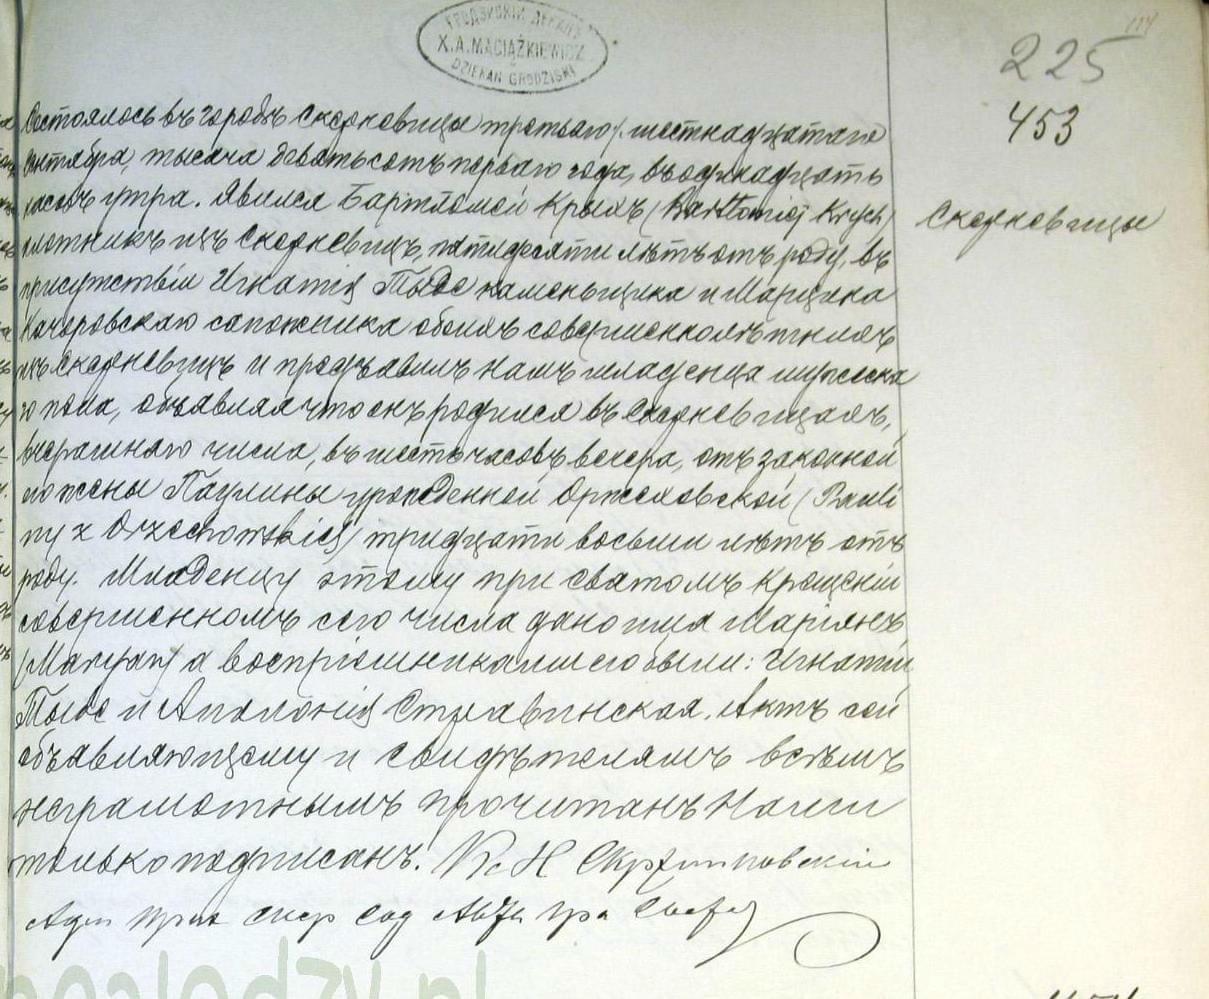 ГРОДЗИСКІЙ ДЕКАНЪ
X. A. MACIĄŻKIEWICZ
DZIEKAN GRODZISKI
225
453
Скерневицы
Состоялось въ городѣ Скерневицы третьяго/шестнадцатаго
Сентября, тысяча девятьсотъ перваго года, въ одинадцать
часовъ утра. Явился Бартломей Крыхъ (Bartłomiej Krych)
плотникъ изъ Скерневицъ, пятидесяти лѣтъ отъ роду, въ
присутствіи Игнатія каменьщика и Марцина
Качоровскаго сапожника обоихъ совершеннолѣтнихъ
изъ Скерневицъ и предъявилъ намъ младенца мужеска
го пола, объявляя что онъ родился въ Скерневицахъ,
вчерашняго числа, въ шесть часовъ вечера, отъ законной
его жены Паулины урожденной Оржеховской (Pauli
ny z Orzechowskich) тридцати восьми лѣтъ отъ
роду. Младенцу этому при святомъ крещеніи
совершенномъ сего числа дано имя Маріянъ
(Maryan) а воспріемниками его были: Игнатій
и Аполонія Стравинская. Актъ сей
объявляющему и свидѣтелямъ всѣмъ
неграмотнымъ прочитанъ Нами
только подписанъ. Кс Н